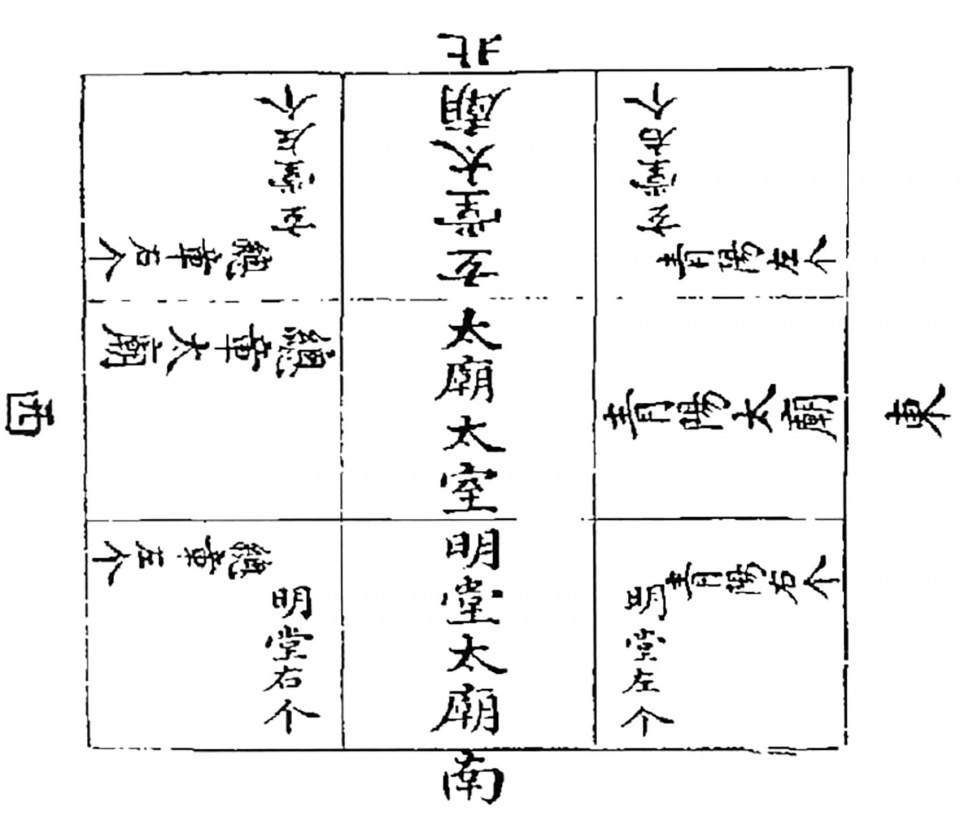 北
玄堂右个
青陽左个
玄堂太廟
玄堂左个
總章右个
東
青陽太廟
太廟太室
總章大廟
西
青陽右个
明堂左个
明堂太廟
明堂右个
總章左个
南